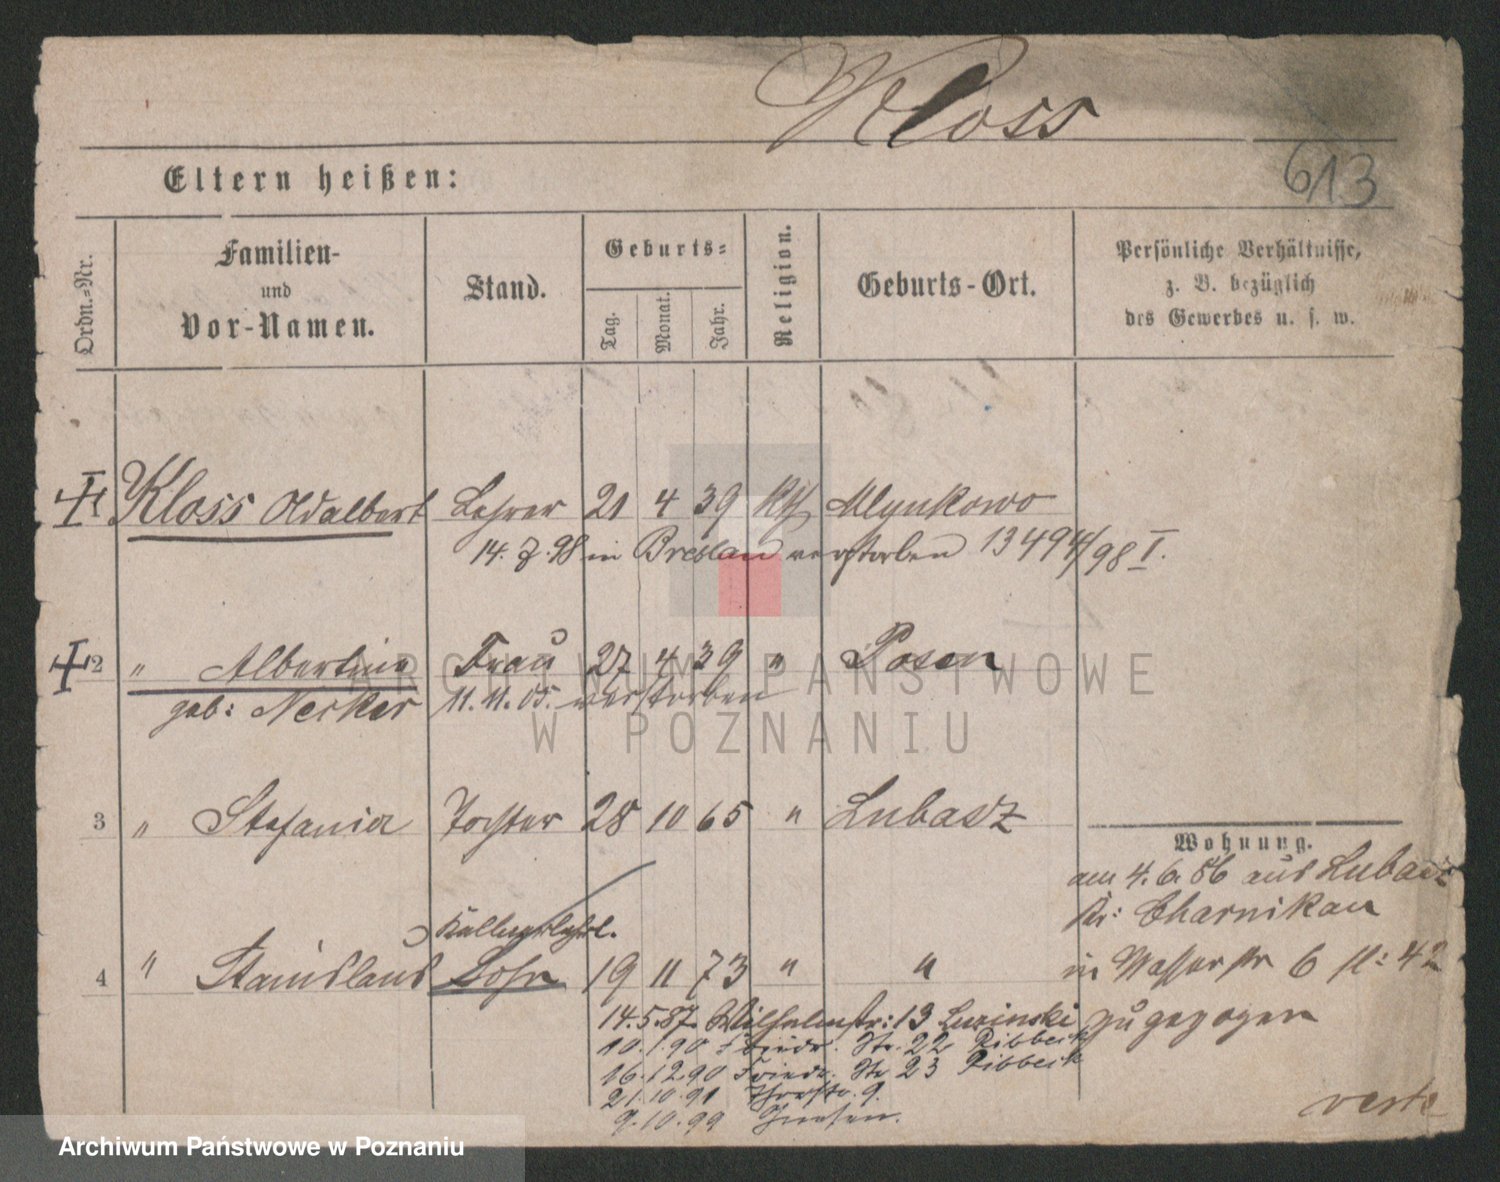 Kloss
613
Eltern heißen:
Ordn.=Nr.
Familien-
und
Vor-Namen.
Stand.
Geburts=
Tag.
Monat.
Jahr.
Religion.
Geburts-Ort.
Persönliche Verhältnisse,
z. B. bezüglich
des Gewerbes u. s. w.
Kloss Adalbert Lehrer 21 4 39 kth Mlynkowo
14. 7. 98 in Breslau verstorben 13494/98 I.
2 " Albertine Frau 27 4 39 " Posen
geb: Neske 11. 11. 05. verstorben
3 " Stefania Tochter 28 10 65 " Lubasz
Wohnung.
am 4. 6. 86 aus Lubasz
Kr: Czarnikau
4 " Stanislaus Sohn 19 11 73 " "
in Wasserstr 6 bl: 42
zugezogen
14.5.87. Wilhelmstr: 13 Luzinski
10.1.90 Friedr. Str. 22 Ribbeck
16.12.90 Friedr. Str 23 Ribbeck
21.10.91 9.
9.10.99 Gnesen.
verte
ARCHIWUM PAŃSTWOWE
W POZNANIU
Archiwum Państwowe w Poznaniu